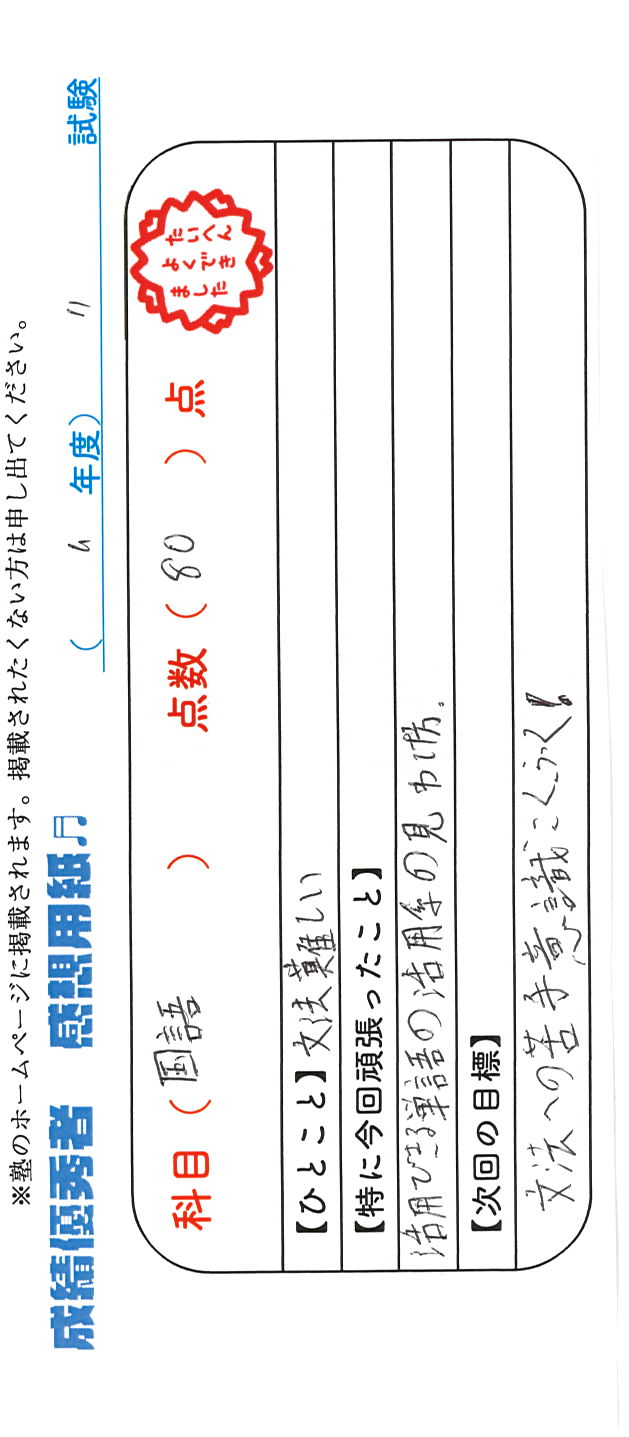 ※塾のホームページに掲載されます。掲載されたくない方は申し出てください。
成績優秀者 感想用紙♫
( 4 年度) 11 試験
科目 ( 国語 ) 点数 ( 80 ) 点
たいへん
よくでき
ました
【ひとこと】文法難しい
【特に今回頑張ったこと】
活用びきる単語の活用条の見わけ方。
【次回の目標】
文法への苦手意識こくふく!